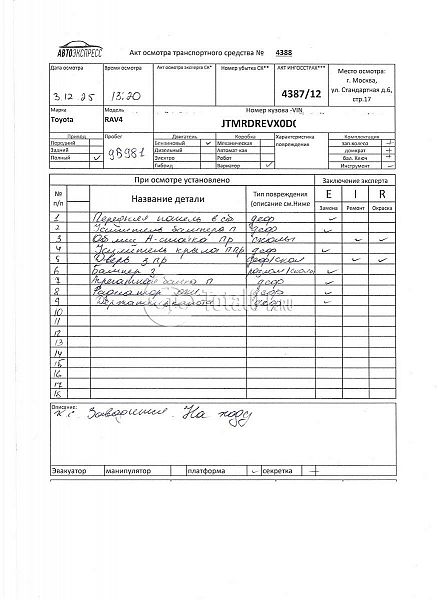 АВТОЭКСПРЕСС Акт осмотра транспортного средства № 4388
Дата осмотра Время осмотра Акт осмотра эксперта СК* Номер убытка СК** АКТ ИНГОССТРАХ*** Место осмотра:
3.12.25 13:20 4387/12 г. Москва,
ул. Стандартная д.6,
стр.17
Марка Модель Номер кузова -VIN
Toyota RAV4 JTMRDREVX0D(
Привод Пробег Двигатель Коробка Характеристика повреждения Комплектация
Передний 98981 Бензиновый ✓ Механическая зап.колесо +
Задний Дизельный Автомат-кая домкрат +
Полный ✓ Электро Робот бал. Ключ +
Гибрид Вариатор ✓ Инструмент ✓
№ п/п При осмотре установлено Заключение эксперта
Название детали Тип повреждения (описание см.Ниже E I R
Замена Ремонт Окраска
1 Передняя панель в сб деф ✓
2 Усилитель бампера п деф ✓
3 А-стойка пр сколы ✓ ✓
4 Усилитель крыла ппр деф ✓
5 Дверь з пр деф/скол ✓ ✓
6 Бампер з ✓
7 балка п деф ✓
8 Радиатор деф ✓
9 капота деф ✓
10
11
12
13
14
15
16
17
18
Total01.ru
Описание:
к.с Заварения. На ходу
Эвакуатор манипулятор платформа ✓ секретка +